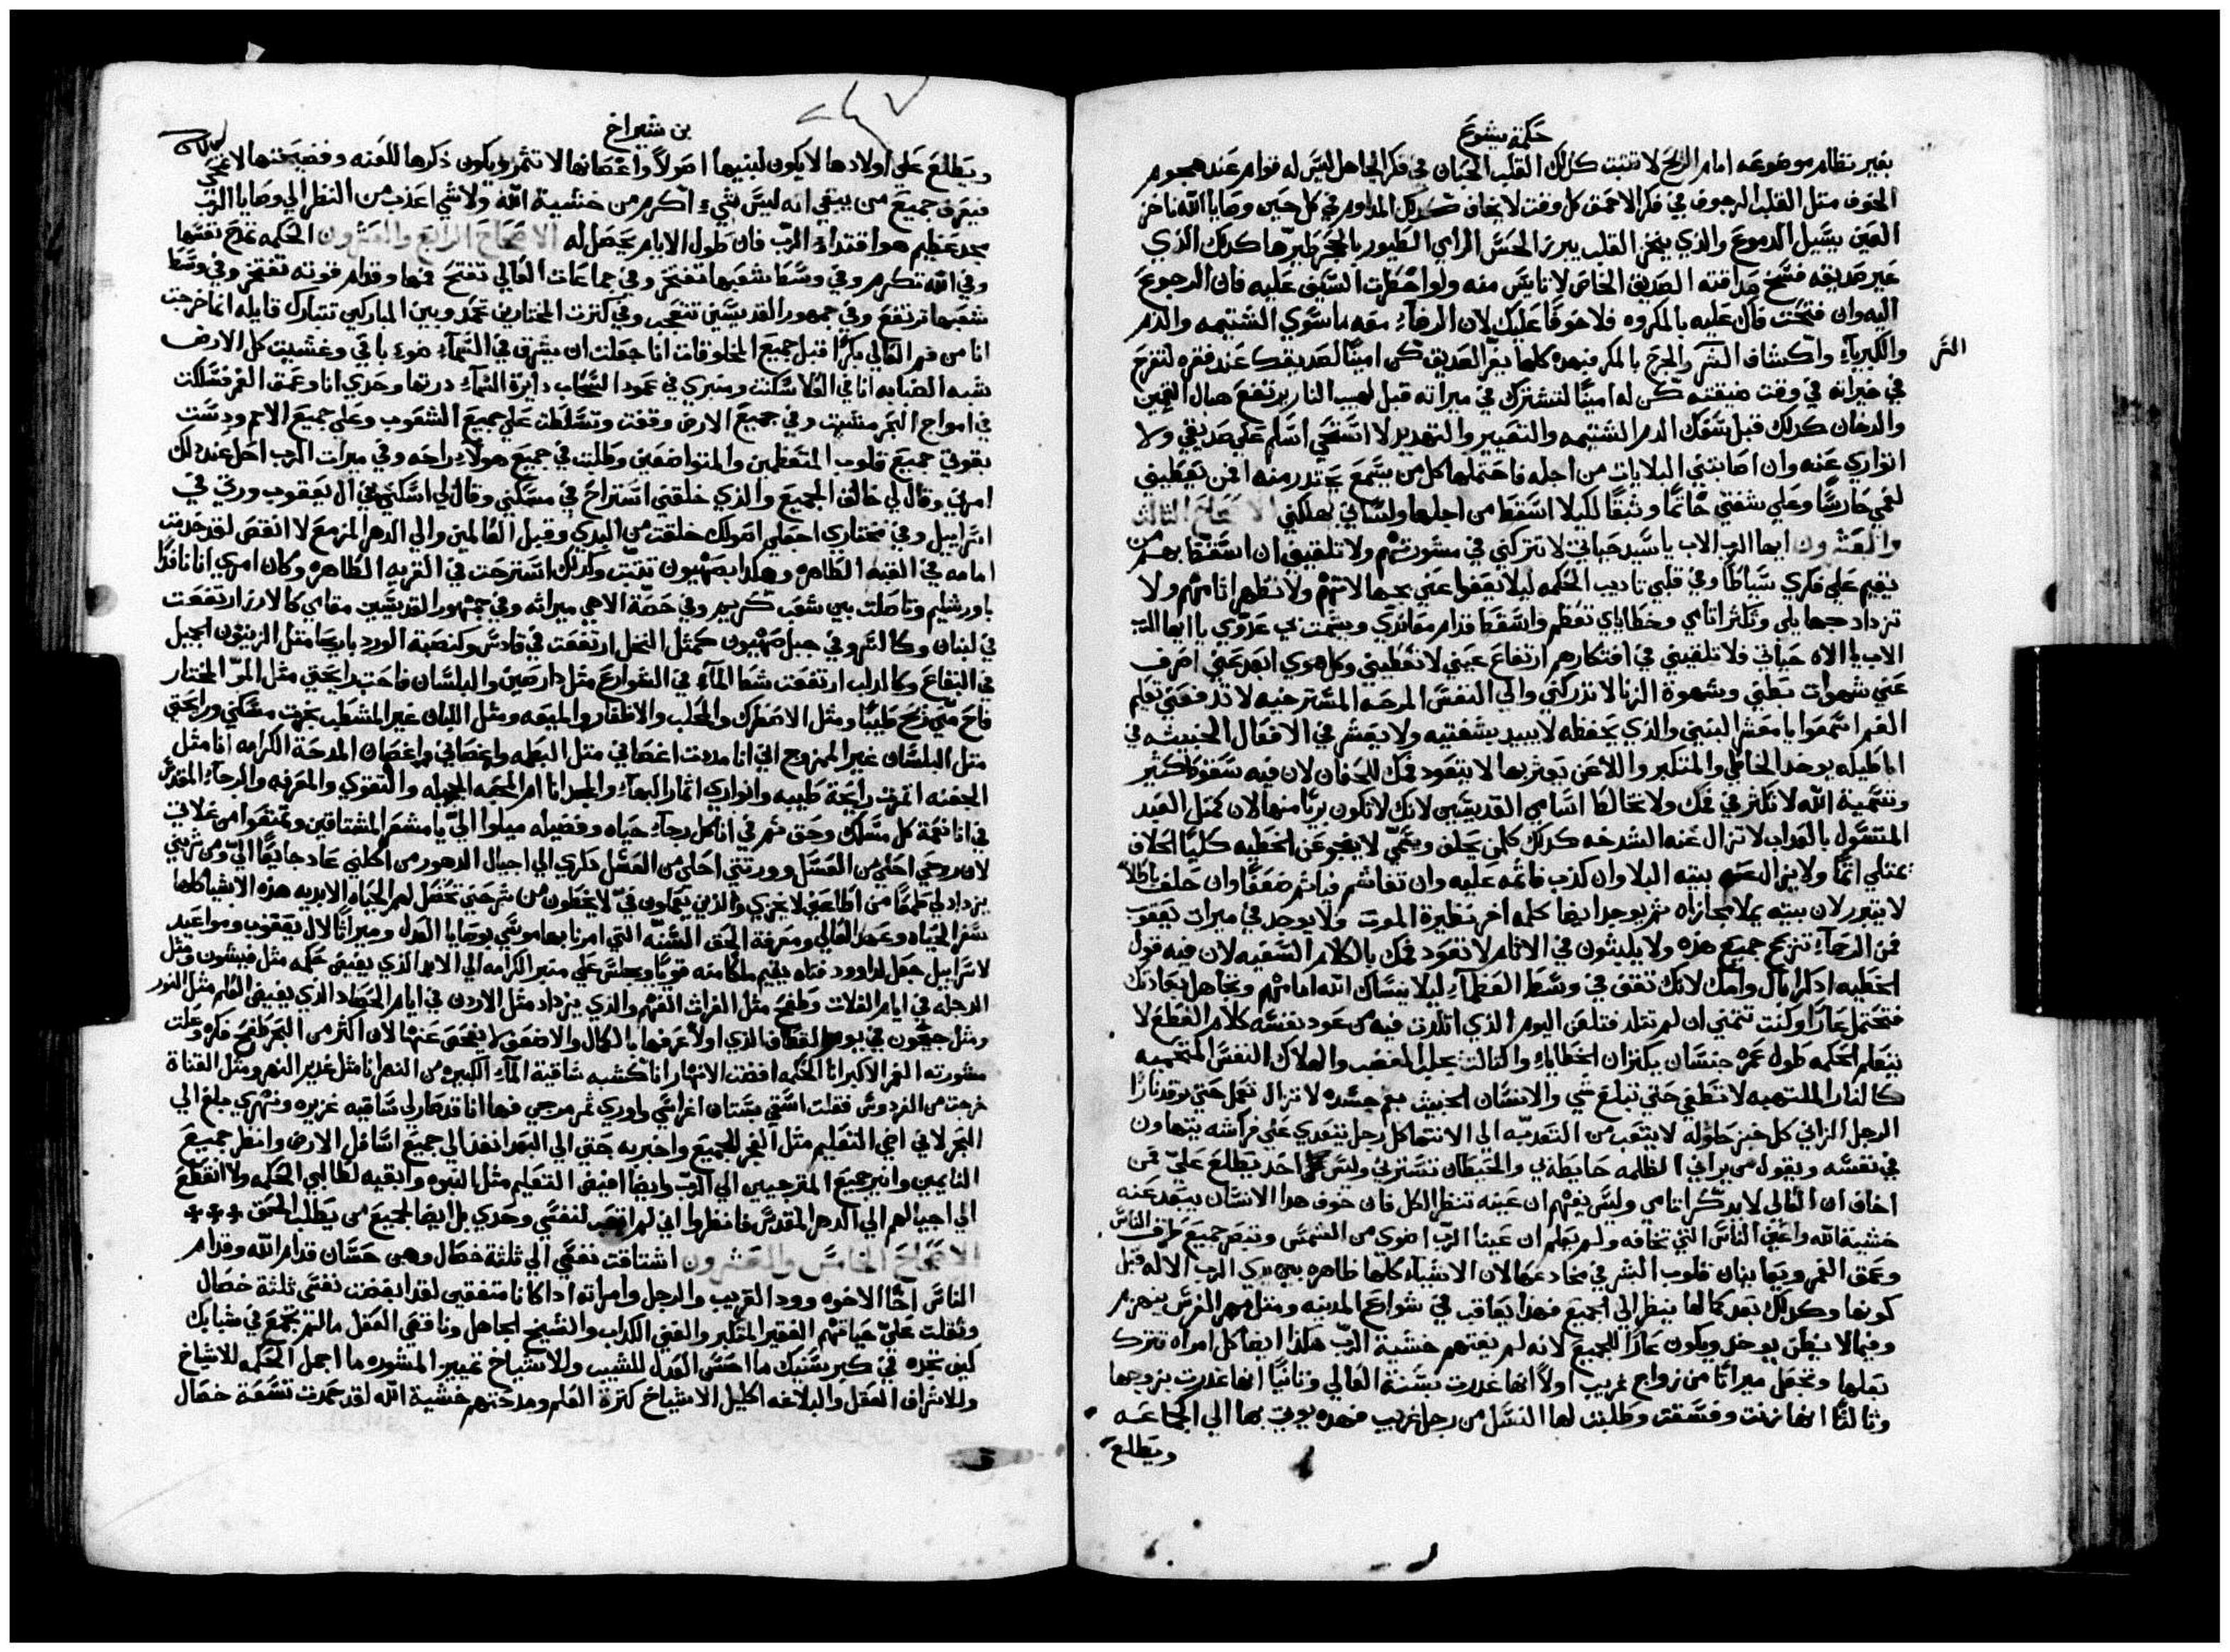 حكمة يشوع
بغير نظام موضوعه امام الريح لا تثبت كذلك القلب الجبان في فكر الجاهل ليس له قوام عند هجوم
الخوف مثل القلب المرجوف في فكر الاحمق كل وقت لا يخاف كذلك المداوم في كل حين وصايا الله ناخز
العين يسيل الدموع والذي ينخز القلب يبرز الحس الرامي الطيور بالحجر يطيرها كذلك الذي
عير صديقه فسخ صداقته الصديق الخاص لا تايس منه ولو اخطرت السيف عليه فان الرجوع
اليه وان فتحت فاك عليه بالمكروه فلا خوفا عليك لان الرضاء معه ما سوي الشتيمه والذم
والكبرياء وانكشاف السر والجرح بالمكر فبهذه كلها يفر الصديق كن امينا لصديقك عند فقره لتفرح
السر
في خيراته في وقت ضيقته كن له امينا لتشترك في ميراته قبل لهيب النار يرتفع هبال التخين
والدخان كذلك قبل سفك الدم الشتيمه والتعيير والتهديد لا استحي اسلم علي صديقي ولا
اتواري عنه وان اصابتني البلايات من اجله فاحتملها كل من يسمع يحتدر منه امن يعطيني
لفمي حارسا وعلي شفتي خاتما وثيقا لكيلا اسقط من اجلها ولساني يهلكني الاصحاح الثالث
والعشرون ايها الرب الاب يا سيد حياتي لا تتركني في مشورتهم ولا تلقيني ان اسقط بهم من
يقيم علي فكري سياطا وفي قلبي تاديب الحكمه ليلا يعفوا عني بجهالاتهم ولا تظهر اثامهم ولا
تزداد جهايلي وتكثر اثامي وخطاياي تعظم واسقط قدام معاندي ويشمت بي عدوي يا ايها الرب
الاب يا الاه حياتي فلا تلقيني في افتكارهم ارتفاع عيني لا تعطيني وكل هوي ابعد عني اصرف
عني شهوات بطني وشهوة الزنا لا تدركني والي النفس المرحه المسترخيه لا تدفعني تعليم
الفم اسمعوا يا معشر البنين والذي يحفظه لا يبيد بشفتيه ولا يعثر في الافعال الخبيثه في
اباطيله يوجد الخاطي والمتكبر واللاعن يعثر بها لا يتعود فمك للحفان لان فيه سقوط كثير
وتسمية الله لا تكثر في فمك ولا تخالط اسامي القديسين لانك لا تكون بريا منها لان كمثل العبد
المتسول بالعذاب لا تزال عنه الشدخه كذلك كل من يحلف ويسمي لا ينجو عن الخطيه كليا الحلاف
يمتلي اثما ولا يزال عنه بيته البلا وان كذب فاثمه عليه وان تغاشم فياثم ضعفا وان حلف باطلا
لا يتبرر لان بيته يملا مجازاه ثم يوجد ايضا كلمه اخر نظيرة الموت ولا يوجد في ميرات يعقوب
فمن الرحماء تنزح جميع هذه ولا يلبثون في الاثام لا تعود فمك بالكلام السفيه لان فيه قول
الخطيه اذكر اباك وامك لانك تقف في وسط العظماء ليلا ينساك الله امامهم وتجاهل بعادتك
فتحتمل عارا وكنت تتمني ان لم تتلد فتلعن اليوم الذي اتلدت فيه من عود نفسه كلام القطع لا
يتعلم الحكمه طول عمره جنسان يكتران الخطايا والثالت يجلب الغضب والهلاك النفس المتحميه
كالنار الملتهبه لا تنطفي حتي تبلع شي والانسان الخبيث بفم جسده لا تزال تعمل حتي توقد نارا
الرجل الزاني كل خبز حلو له لا يتعب من التعديه الي الانتها كل رجل يتعدي علي فراشه يتهاون
في نفسه ويقول من يراني الظلمه حايطه بي والحيطان تسترني وليس احد يطلع علي فمن
اخاف ان العالي لا يدكر اثامي وليس يفهم ان عينه تنظر الكل فان خوف هذا الانسان يبعد عنه
خشية الله واعين الناس التي تخافه ولم يعلم ان عينا الرب اضوي من الشمس وتبصر جميع طرق الناس
وعمق الغمر ويعاينان قلوب البشر في مخادعها لان الاشياء كلها ظاهره بين يدي الرب الاله قبل
كونها وكذلك بعد كمالها ينظر الي الجميع فهذا يعاقب في شوارع المدينه ومثل مهر الفرس ينهزم
وفيما لا يظن يوخذ ويكون عارا للجميع لانه لم يفهم خشية الرب هكذا ايضا كل امراه تترك
بعلها وتجعل ميراثا من زواج غريب اولا انها غدرت بسنة العالي وثانيا انها غدرت بزوجها
وثالثا انها زنت وفسقت وطلبت لها النسل من رجل غريب فهذه يوتي بها الي الجماعه
ويطلع
بن شيراخ
ويطلع علي اولادها لا يكون لبنيها اصولا واغصانها لا تثمر ويكون ذكرها للعنه وفضيحتها لا تمحي
فيعرف جميع من يبقي انه ليس شيء اكرم من خشية الله ولا شي اعذب من النظر الي وصايا الرب
مجد عظيم هو اقتداء الرب فان طول الايام يحصل له الاصحاح الرابع والعشرون الحكمه تمدح نفسها
وفي الله تكرم وفي وسط شعبها تفتخر وفي جماعات العالي تفتح فمها وقدام قوته تفتخر وفي وسط
شعبها ترتفع وفي جمهور القديسين تتعجب وفي كترت المختارين تحمد وبين المباركين تتبارك قايله انا خرجت
انا من فم العالي بكرا قبل جميع المخلوقات انا جعلت ان يشرق في السماء ضوء باقي وغشيت كل الارض
شبه الضبابه انا في العلا سكنت ومنبري في عمود السحاب دايرة السماء درتها وحدي انا وعمق الغمر سلكت
في امواج البحر مشيت وفي جميع الارض وقفت وتسلطت علي جميع الشعوب وعلي جميع الامم ودست
بقوتي جميع قلوب المتعظمين والمتواضعين وطلبت في جميع هولاء راحه وفي ميرات الرب احل عند ذلك
امرني وقال لي خالق الجميع والذي خلقني استراح في مسكني وقال لي اسكني في ال يعقوب ورثي في
اسراييل وفي مختاري اجعلي اصولك خلقت من البدي وقبل العالمين والي الدهر المزمع لا انقص لقد خدمت
امامه في القبه الطاهره وهكذا بصهيون تثبت وكذلك استرحت في القريه الطاهره وكان امري انا نافدا
باورشليم وتاصلت بين شعب كريم وفي حصة الاهي ميراثه وفي جمهور القديسين مقامي كالارز ارتفعت
في لبنان وكالسرو في جبل صهيون كمثل النخل ارتفعت في قادس وكنصبة الورد باريحا مثل الزيتون الجميل
في البقاع وكالدلب ارتفعت شط الماء في الشوارع مثل دارصين والبلسان فاحت رايحتي مثل المر المختار
فاح مني نرح طيبا ومثل الاصطرك والمحلب والاظفار والميعه ومثل اللبان غير المشطب بخرت مسكني ورايحتي
مثل البلسان غير الممزوج اني انا مددت اغصاني مثل البطمه واغصاني اغصان المدحة الكرامه انا مثل
الجفنه اثمرت رايحة طيبه وانواري اثمار البهاء والمجد انا ام المحبه الجميله والتقوي والمعرفه والرجاء المقدس
في انا نعمة كل مسلك وحق ثم في انا كل رجاء حياه وفضيله ميلوا الي يا معشر المشتاقين وتمتعوا من غلاتي
لان روحي احلي من العسل وورثتي احلي من العسل ذكري الي اجيال الدهور من اكلني عاد جايعا الي ومن شربني
يزداد لي ظمأ من اطاعني لا يخزي والذين يعملون في لا يخطون من شرحني تحصل لهم الحياه الابديه هذه الاشيا كلها
سفر الحياه وعهد العالي ومعرفة الحق السنه التي امرنا بها موسي بوصايا العدل وميراثا لال يعقوب ومواعيد
لاسراييل جعل لداوود فتاه يقيم ملكا منه قويا ويجلس علي منبر الكرامه الي الابد الذي يفيض حكمه مثل فيشون ومثل
الدجله في ايام الغلات وطفح مثل الفرات الفهم والذي يزداد مثل الاردن في ايام الحصاد الذي يفيض العلم مثل النور
ومثل جيحون في يوم القطاف الذي اولا عرفها بالكمال والاضعف لا يفحص عنها لان اكثر من البحر طفح فكره وعلت
مشورته الغمر الاكبر انا الحكمه افضت الانهار انا كشبه ساقية الماء الكبيره من النهر انا مثل غدير النهر ومثل القناة
خرجت من الفردوس فقلت اسقي بستان اغراسي واروي ثمر مرجي فها انا قد صار لي ساقيه غزيره ونهري بلغ الي
البحر لاني اجي التعليم مثل الفجر للجميع واخبر به حتي الي البعد انفد الي جميع اسافل الارض وانظر جميع
النايمين وانير جميع المترجيين الي الرب وايضا افيض التعليم مثل النبوه وابقيه لطالبي الحكمه ولا انقطع
الي اجيالهم الي الدهر المقدس فانظروا اني لم اتعب لنفسي وحدي بل ايضا لجميع من يطلب الحق
الاصحاح الخامس والعشرون اشتاقت نفسي الي ثلثة خصال وهي حسان قدام الله وقدام
الناس اخا الاخوه وود القريب والرجل وامراته اذا كانا متفقين لقد ابغضت نفسي ثلثة خصال
وثقلت علي حياتهم الفقير المتكبر والغني الكذاب والشيخ الجاهل وناقص العقل ما لم تجمع في شبابك
كيف تجده في كبر سنك ما احسن العدل للشيب وللاشياخ تمييز المشوره ما اجمل الحكمه للاشياخ
وللاشراف العقل والبلاغه اكليل الاشياخ كثرة العلم ومدحتهم خشية الله لقد حمدت تسعة خصال